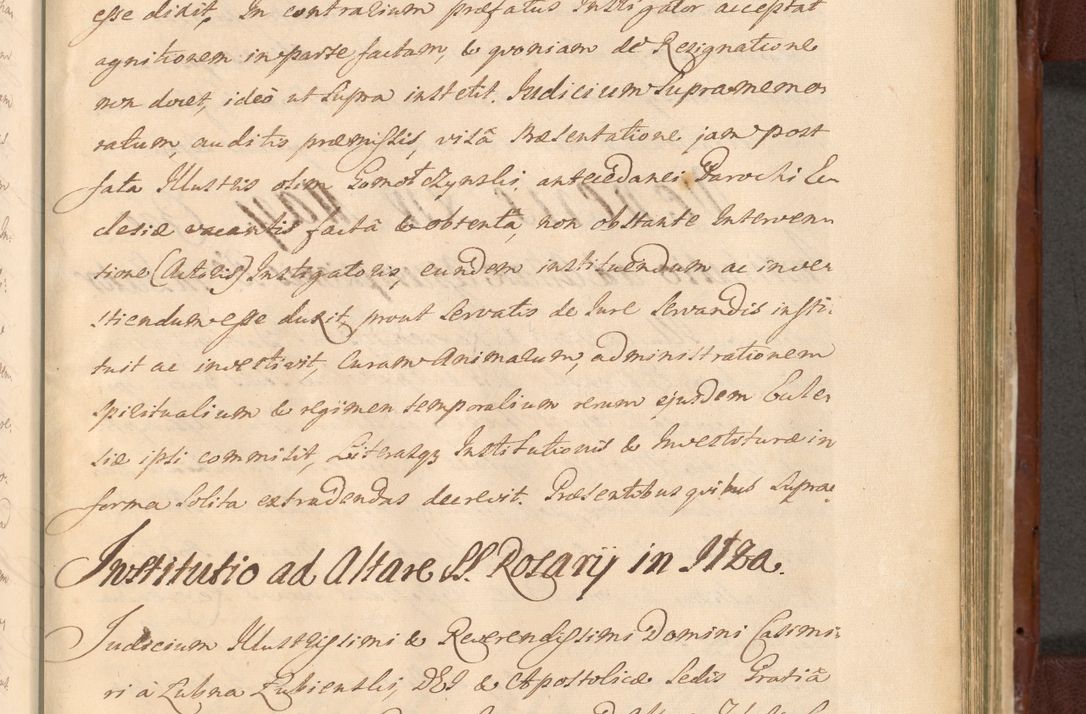 esse dixit, In contrarium præfatus Instigator acceptat
agnitionem in parte factam, & quoniam de Resignatione
non docet, ideò ut supra institit. Judicium supramemo-
ratum, auditis præmissis, visâ Præsentatione jam post
fata Illustris olim antecedanei Parochi Ec-
clesiæ vacantis factâ & obtentâ, non obstante Interven-
tione (Actoris) Instigatoris, eundem instituendum ac inve-
stiendum esse duxit, prout servatis de Jure servandis insti-
tuit ac investivit, Curam Animarum, administrationem
spiritualium & regimen temporalium rerum ejusdem Eccle-
siæ ipsi commisit, Literasq; Institutionis & Investituræ in
forma solita extradendas decrevit. Præsentibus quibus supra.
Institutio ad Altare SS. Rosarij in Ilza.
Judicium Illustrissimi & Reverendissimi Domini Casimi-
ri à Łubna Łubienski, DEI & Apostolicæ Sedis Gratiâ